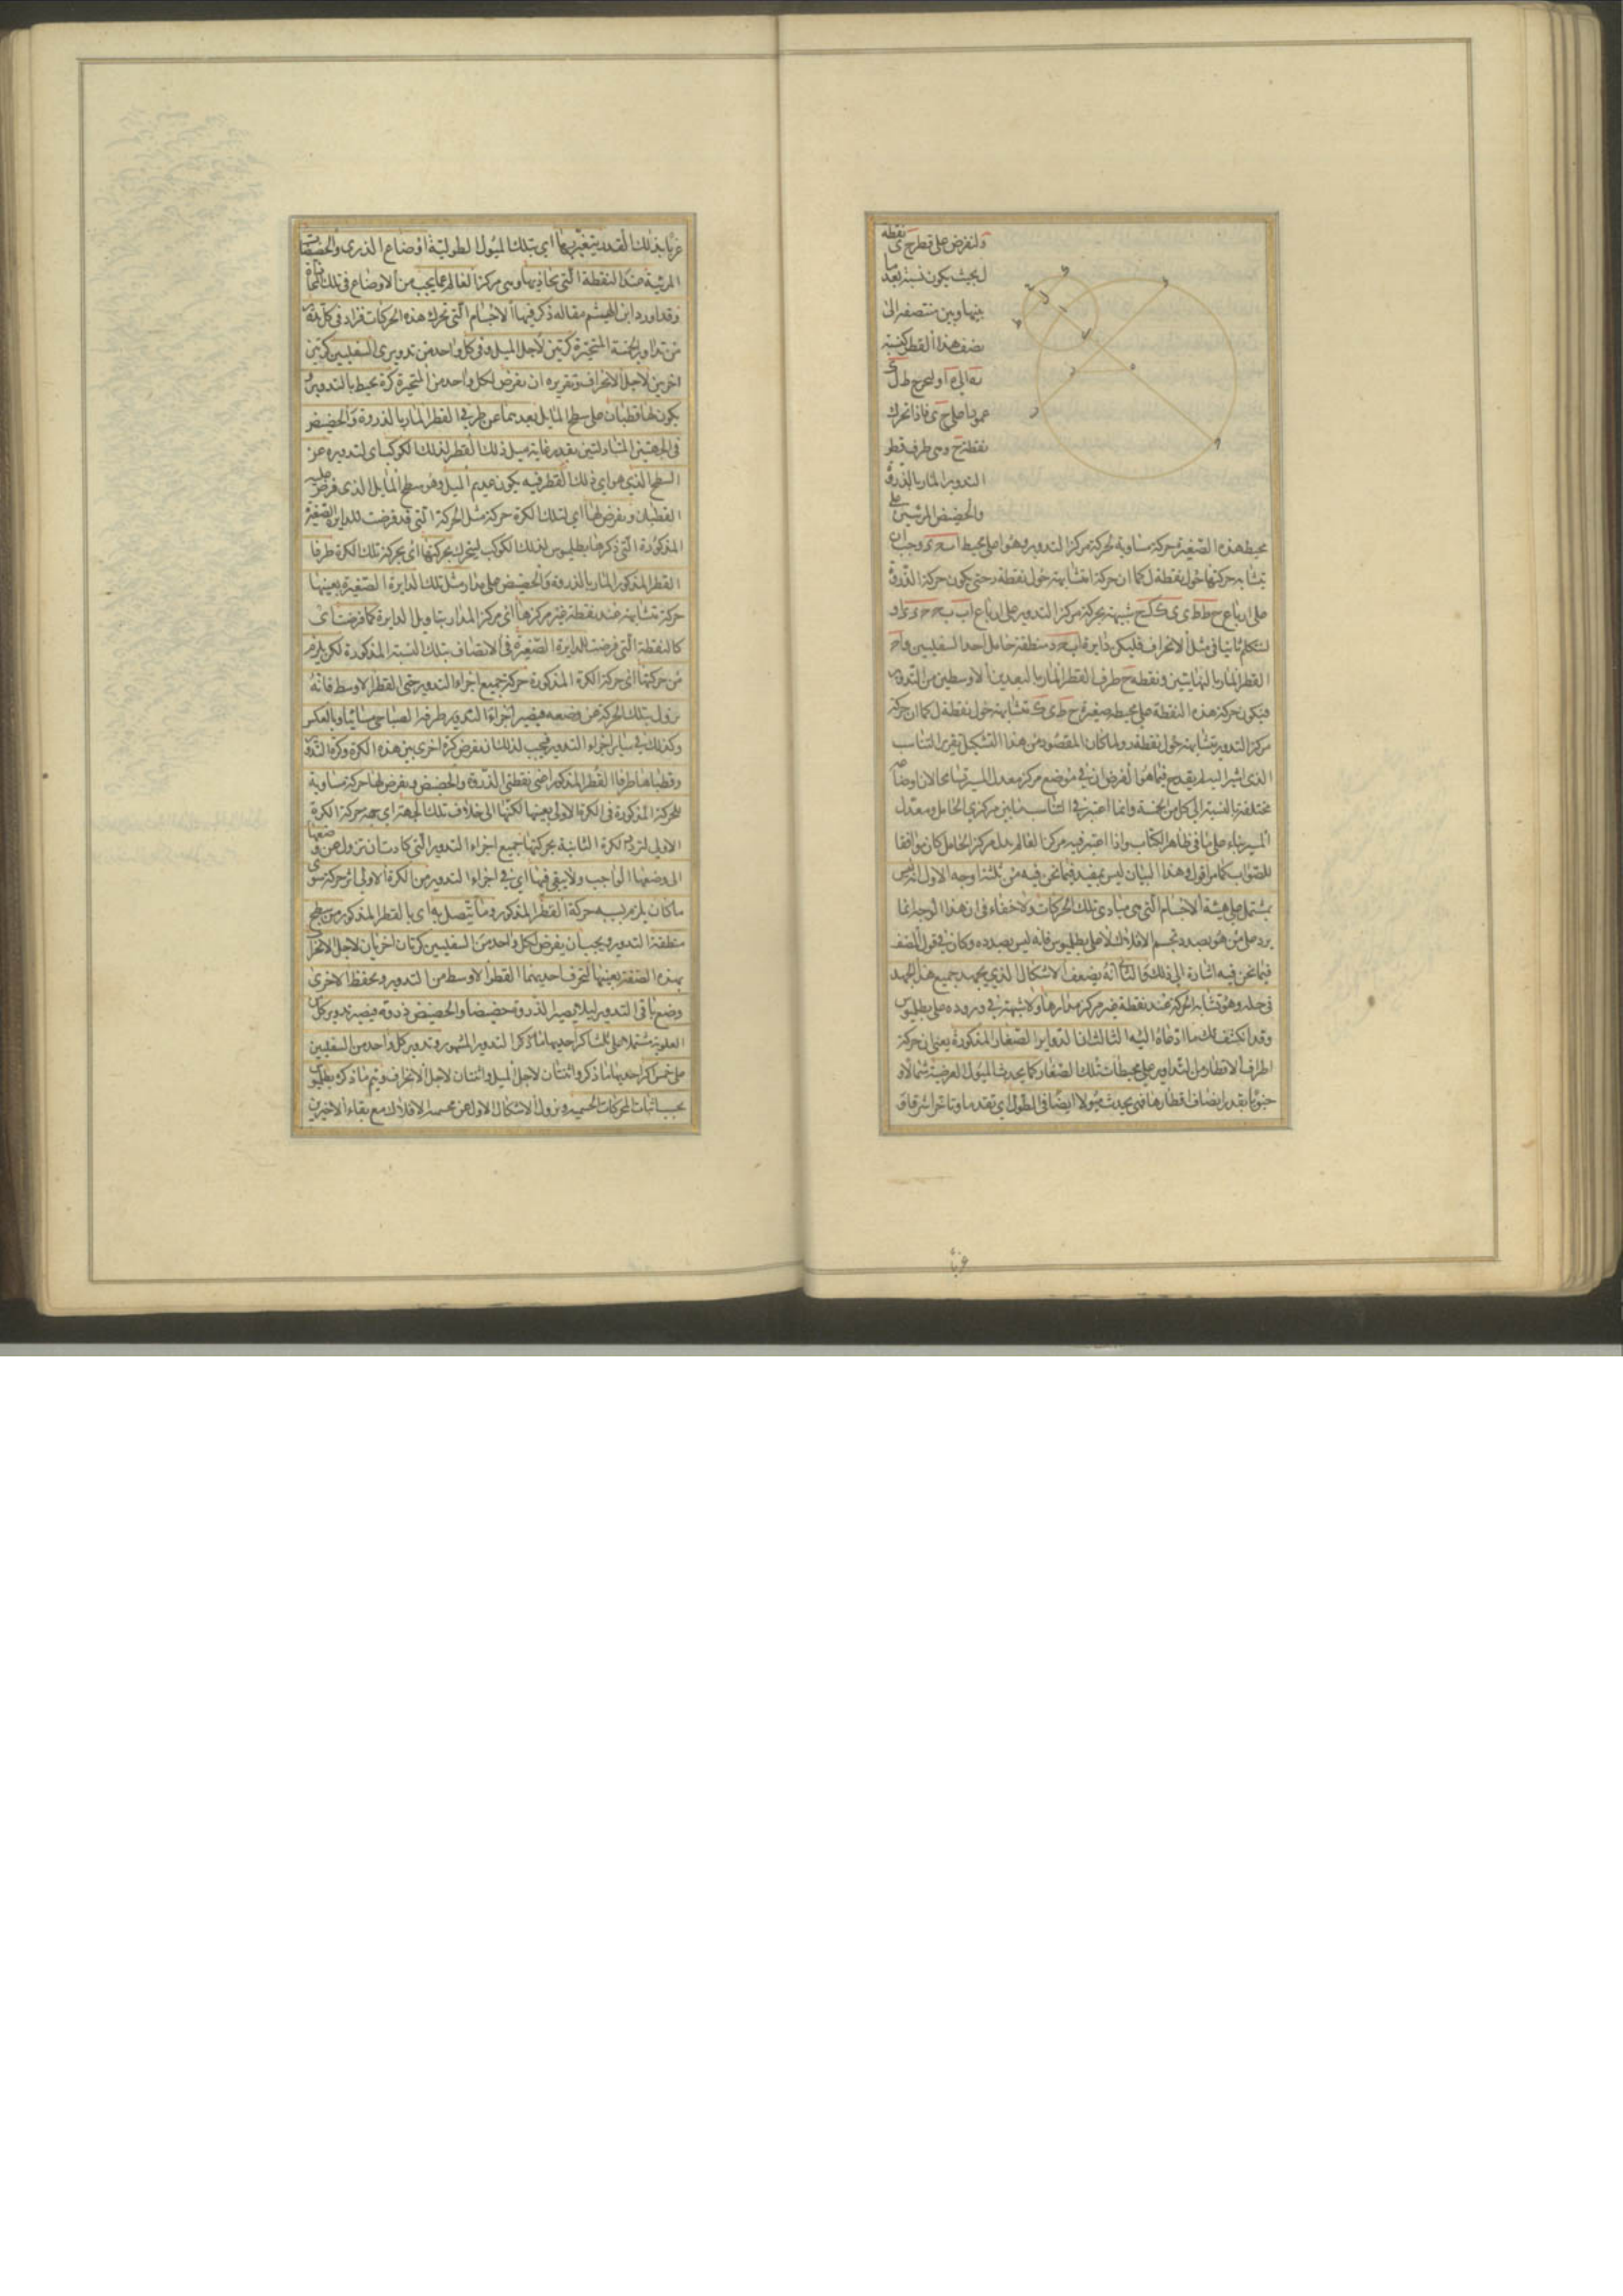 ولنفرض على قطر ح ى نقطة
ل بحيث يكون نسبة بعد ما
بينها وبين منتصفه الى
نصف هذا القطر كنسبة
عمودا على ح ى فاذا تحرك
نقطة ح وهى طرف قطر
التدوير المار بالذروة
والحضيض المرئيين على
محيط هذه الصغيرة حركة مساوية لحركة مركز التدوير وهو ا على محيط وجب ان
يتشابه حركتها حول نقطة ل كما ان حركة ا متشابهة حول نقطة ر حتى يكون حركة الذروة
على ارباع شبيهة بحركة مركز التدوير على ارباع
لنتكلم ثانيا فى مثل الانحراف فليكن دايرة منطقة حامل احد السفليين و
القطر المار بالنهايتين ونقطة ح طرف القطر المار بالبعدين الاوسطين من التدوير
فيكون حركة هذه النقطة على محيط صغيرة ح ط ى ك متشابهة حول نقطة ل كما ان حركة
مركز التدوير متشابهة حول نقطة ر ولما كان المقصود من هذا التشكيل تقرير التناسب
الذى اشير اليه لم يقدح فيما هو الغرض ان فى موضع مركز معدل المسير تسامحا لان اوضاعه
مختلفة بالنسبة الى كل من الخمسة وانما اعتبر فى التناسب ما بين مركزى الحامل ومعدل
المسير بناء على ما فى ظاهر الكتاب واذا اعتبر فيه مركز العالم بدل مركز الحامل كان موافقا
للصواب كما مر اقول وهذا البيان ليس بمفيد فيما نحن فيه من ثلثة اوجه الاول انه ليس
بمشتمل على هيئة الاجسام التى هى مبادى تلك الحركات ولا خفاء فى ان هذا الوجه انما
يرد على من هو بصدد تجسم الافلاك لا على بطليموس فانه ليس بصدده وكان فى قول المصنف
فيما نحن فيه اشارة الى ذلك والثانى انه يضعف الاشكال الذى يجهد جميع هذا الجهد
فى حله وهو تشابه الحركة عند نقطة غير مركز مدارها ولا شبهة فى وروده على بطليموس
وقد انكشف لك ما ادعاه اليه الثالث ان الدواير الصغار المذكورة يعنى ان حركة
اطراف الاقطار من التداوير على محيطات تلك الصغار كما يحدث الميول العرضية شمالا و
جنوبا بقدر انصاف اقطارها فهى يحدث ميولا ايضا فى الطول اى تقدما وتاخرا شرقا و
غربا
غربا بذلك القدر يتغير بها اى بتلك الميول الطولية اوضاع الذرى والحضيضات
المرئية عند النقطة التى تحاذيها وهى مركز العالم عما يجب من الاوضاع فى تلك
وقد اورد ابن الهيثم مقالة ذكر فيها الاجسام التى تحرك هذه الحركات فزاد فى كل تدوير
من تداوير الخمسة المتحيرة كرتين لاجل الميل وفى كل واحد من تدويرى السفليين كرتين
اخريين لاجل الانحراف وتقريره ان نفرض لكل واحد من المتحيرة كرة يحيط بالتدوير و
يكون لها قطبان على سطح المايل بعدهما عن طرفى القطر المار بالذروة والحضيض
فى الجهتين المتبادلتين بقدر غاية ميل ذلك القطر لذلك الكوكب اى لتدويره عن
السطح الذى هو اى ذلك القطر فيه يكون عديم الميل وهو سطح المايل الذى فرض عليه
القطبان ونفرض لها اى لتلك الكرة حركة مثل الحركة التى قد فرضت للدايرة الصغيرة
المذكورة التى ذكرها بطليموس لذلك الكوكب ليتحرك بحركتها اى بحركة تلك الكرة طرفا
القطر المذكور المار بالذروة والحضيض على مدار مثل تلك الدايرة الصغيرة بعينها
حركة متشابهة عند نقطة غير مركزها اى مركز المدار بتاويل الدايرة كما فرضت اى
كالنقطة التى فرضت للدايرة الصغيرة فى الاتصاف بتلك النسبة المذكورة لكن يلزم
من حركتها اى حركة الكرة المذكورة حركة جميع اجزاء التدوير حتى القطر الاوسط فانه
يزول بتلك الحركة عن وضعه فيصير اجزاء التدوير طرفه الصباحى مسائيا وبالعكس
وكذلك فى ساير اجزاء التدوير فيجب لذلك ان نفرض كرة اخرى بين هذه الكرة وكرة التدوير
وقطباها طرفا القطر المذكور اعنى نقطتى الذروة والحضيض ونفرض لها حركة مساوية
للحركة المذكورة فى الكرة الاولى بعينها لكنها الى خلاف تلك الجهة اى جهة حركة الكرة
الاولى لترد الكرة الثانية بحركتها جميع اجزاء التدوير التى كادت ان تزول عن وضعها
الى وضعها الواجب ولا يبقى فيها اى فى اجزاء التدوير من الكرة الاولى اثر حركة سوى
ما كان يلزم بسببه حركة القطر المذكور وما يتصل به اى بالقطر المذكور من سطح
منطقة التدوير ويجب ان يفرض لكل واحد من السفليين كرتان اخريان لاجل الانحراف
بهذه الصفة بعينها لتحرف احديهما القطر الاوسط من التدوير ويحفظ الاخرى
وضع باقى التدوير ليلا يصير الذروة حضيضا والحضيض ذروة فيصير تدوير كل من
العلوية مشتملا على ثلث اكر احديها ما ذكر التدوير المشهور وتدوير كل واحد من السفليين
على خمس اكر احديها ما ذكر واثنتان لاجل الميل واثنتان لاجل الانحراف ويتم ما ذكره بطلميوس
بحسب اثبات المحركات الجسمية ويزول الاشكال الاول عن مجسمة الافلاك مع بقاء الاخيرين